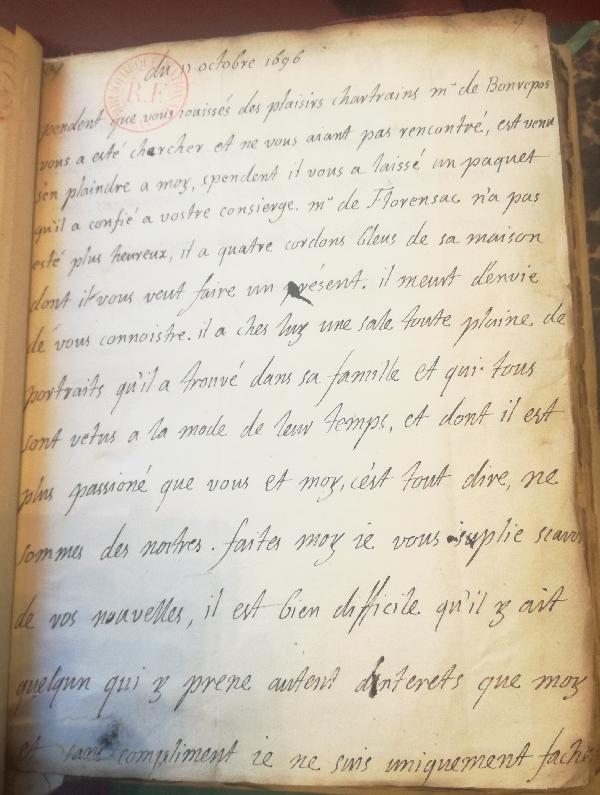 25
du 11 octobre 1696
BIBLIOTHEQUE
R.F
spendent que vous iouissés des plaisirs chartrains mr de Bonrepos
vous a esté chercher et ne vous aiant pas rencontré, est venu
s'en plaindre a moy, spendent il vous a laissé un paquet
qu'il a confié a vostre consierge. mr de Florensac n'a pas
esté plus heureux, il a quatre cordons bleus de sa maison
dont il vous veut faire un présent. il meurt d'envie
de vous connoistre. il a ches luy une sale toute plaine de
portraits qu'il a trouvé dans sa famille et qui tous
sont vetus a la mode de leur temps, et dont il est
plus passioné que vous et moy, c'est tout dire, ne
sommes des nostres. faites moy ie vous suplie scavoir
de vos nouvelles, il est bien difficile qu'il y ait
quelqun qui y prene autent dinterets que moy
et sans compliment ie ne suis uniquement faché